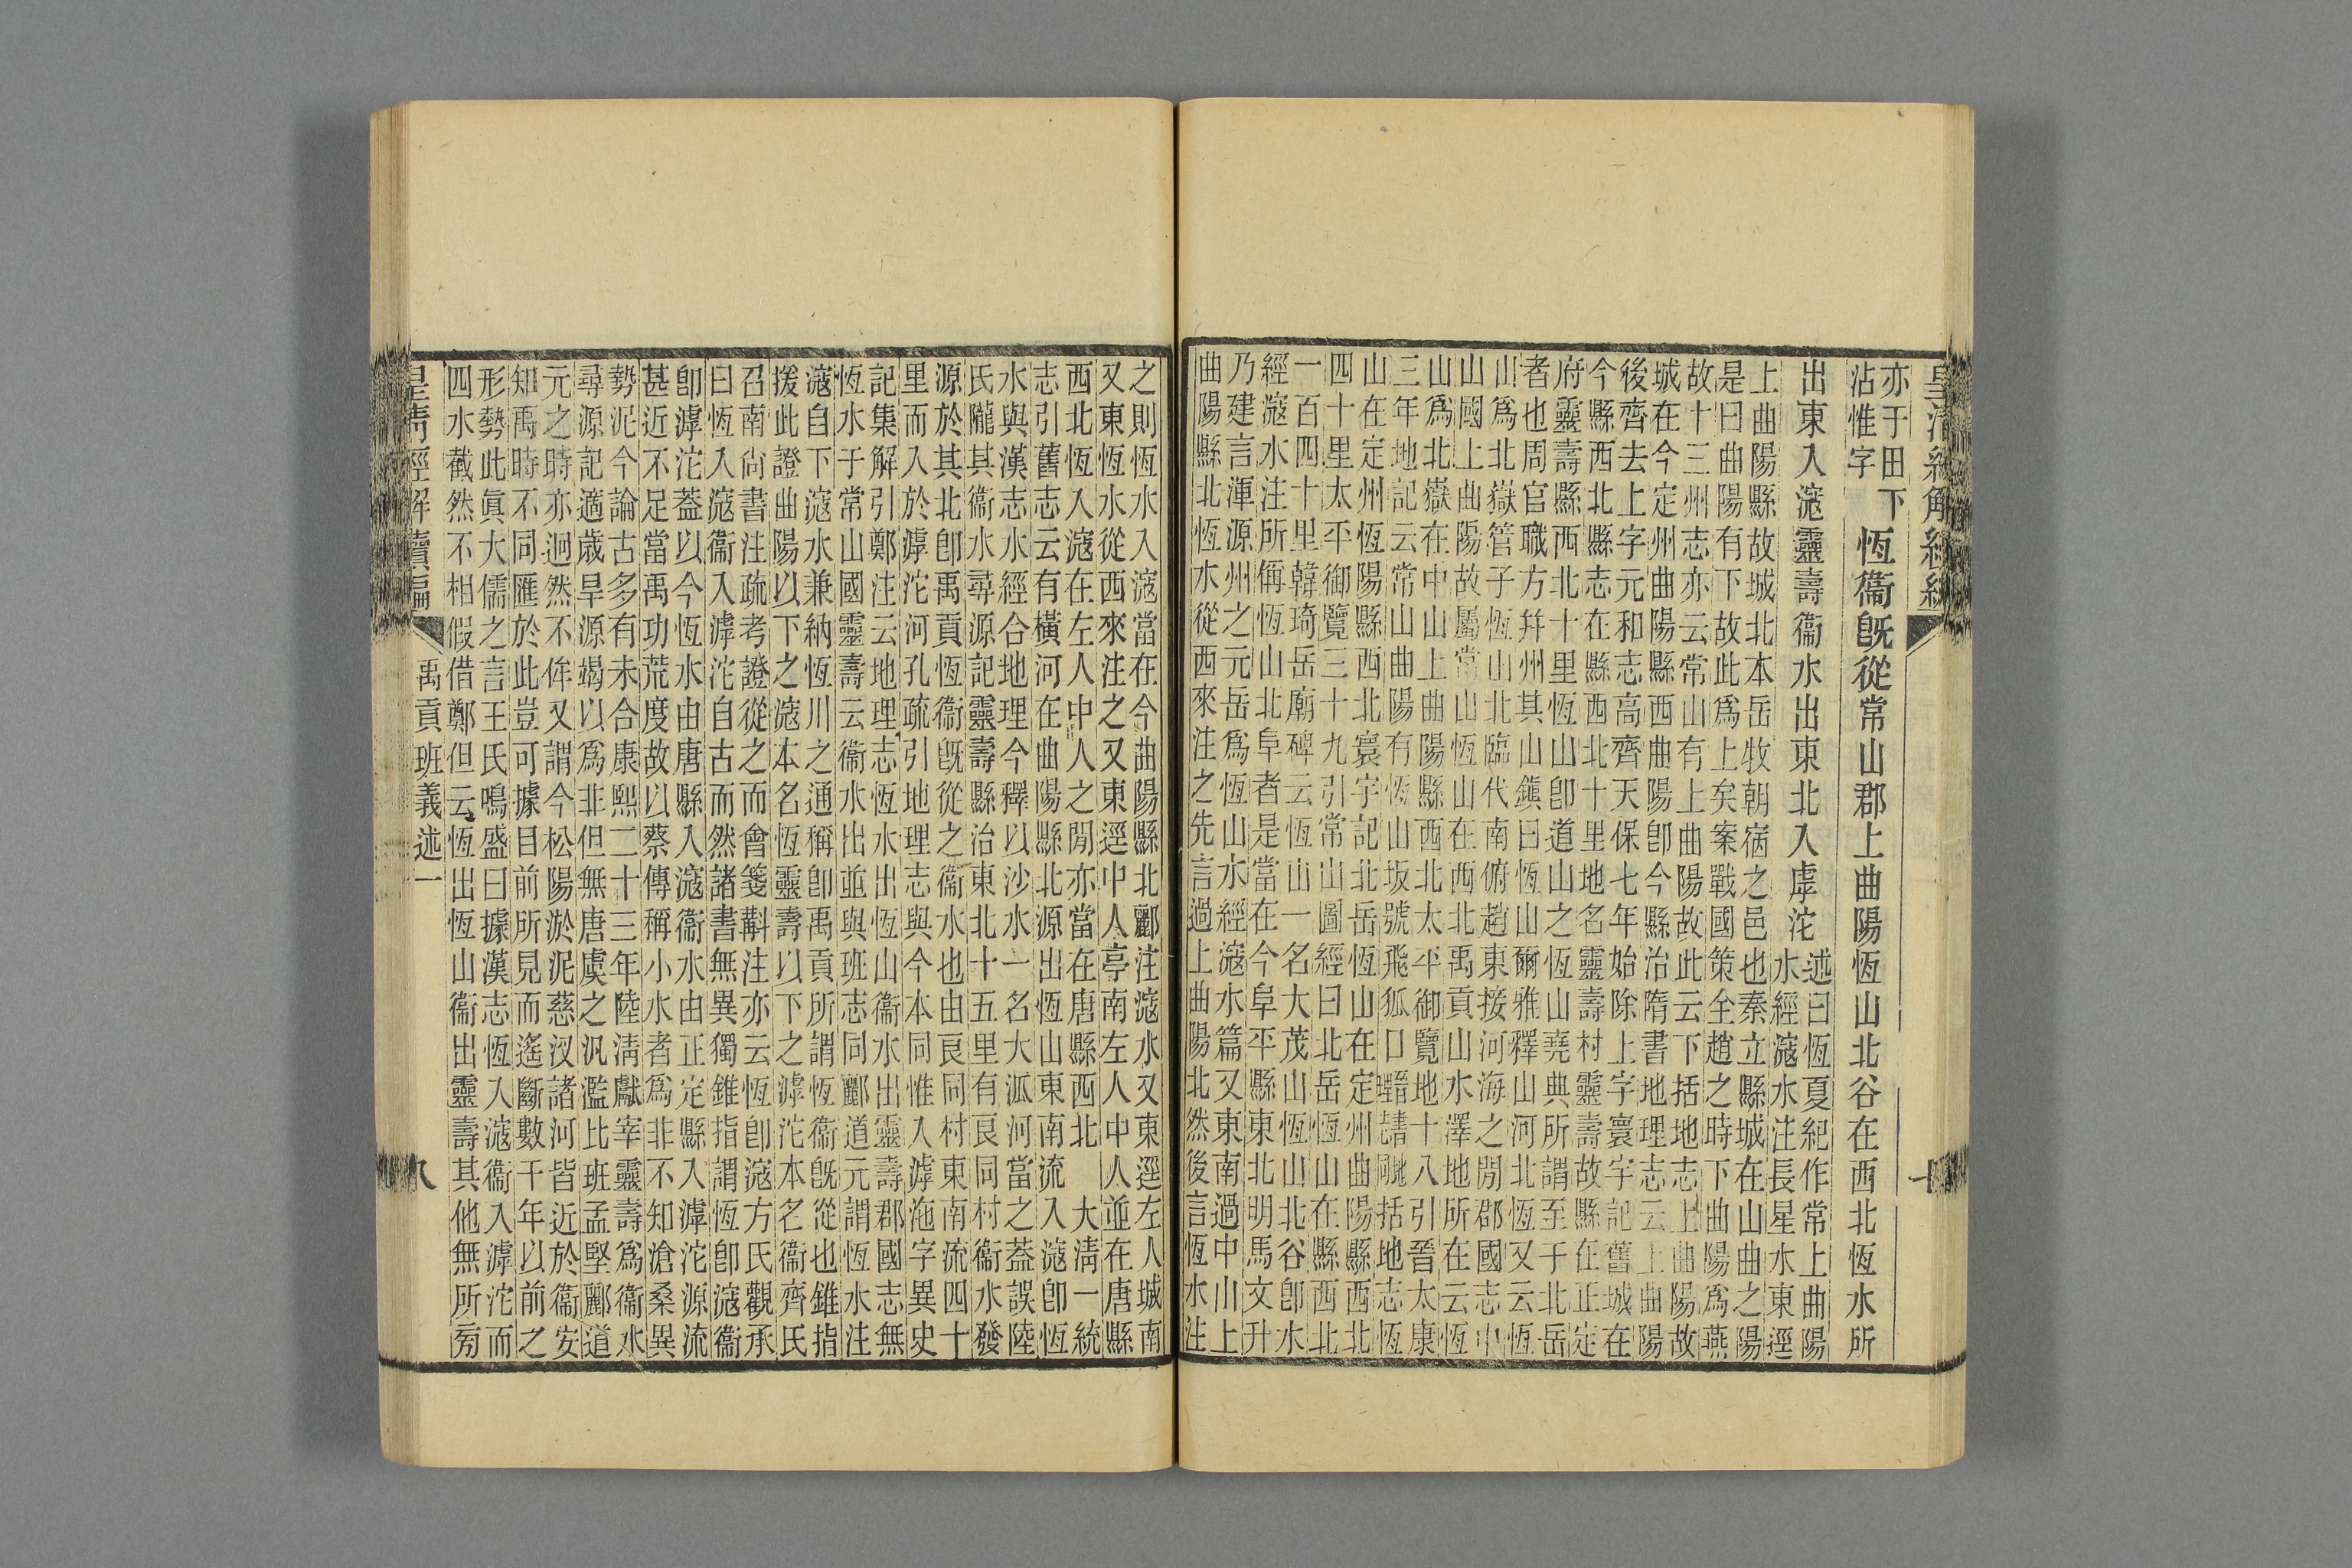 皇清經解續編
亦于田下
沾惟字
恆衞旣從常山郡上曲陽恆山北谷在西北恆水所
出東入滱靈壽衞水出東北入虖沱
述曰恆夏紀作常上曲陽
水經滱水注長星水東逕
上曲陽縣故城北本岳牧朝宿之邑也秦立縣城在山曲之陽
是曰曲陽有下故此爲上矣案戰國策全趙之時下曲陽爲燕
故十三州志亦云常山有上曲陽故此云下括地志上曲陽故
城在今定州曲陽縣西曲陽卽今縣治隋書地理志云上曲陽
後齊去上字元和志高齊天保七年始除上字寰宇記舊城在
今縣西北縣志在縣西北十里地名靈壽村靈壽故縣在正定
府靈壽縣西北十里恆山卽道山之恆山堯典所謂至于北岳
者也周官職方幷州其山鎭曰恆山爾雅釋山河北恆又云恆
山爲北嶽管子恆山北臨代南俯趙東接河海之閒郡國志中
山國上曲陽故屬常山恆山在西北禹貢山水澤地所在云恆
山爲北嶽在中山上曲陽縣西北太平御覽地十八引晉太康
三年地記云常山曲陽有恆山坂號飛狐口括地志恆
山在定州恆陽縣西北寰宇記北岳恆山在定州曲陽縣西北
四十里太平御覽三十九引常山圖經曰北岳恆山在縣西北
一百四十里韓琦岳廟碑云恆山一名大茂山恆山北谷卽水
經滱水注所偁恆山北阜者是當在今阜平縣東北明馬文升
乃建言渾源州之元岳爲恆山水經滱水篇又東南過中山上
曲陽縣北恆水從西來注之先言過上曲陽北然後言恆水注
之則恆水入滱當在今曲陽縣北酈注滱水又東逕左人城南
又東恆水從西來注之又東逕中人亭南左人中人並在唐縣
西北恆入滱在左人中人之閒亦當在唐縣西北大淸一統
志引舊志云有橫河在曲陽縣北源出恆山東南流入滱卽恆
水與漢志水經合地理今釋以沙水一名大泒河當之蓋誤陸
氏隴其衞水尋源記靈壽縣治東北十五里有良同村衞水發
源於其北卽禹貢恆衞旣從之衞水也由良同村東南流四十
里而入於滹沱河孔疏引地理志與今本同惟入滹沲字異史
記集解引鄭注云地理志恆水出恆山衞水出靈壽郡國志無
恆水于常山國靈壽云衞水出並與班志同酈道元謂恆水注
滱自下滱水兼納恆川之通稱卽禹貢所謂恆衞旣從也錐指
援此證曲陽以下之滱本名恆靈壽以下之滹沱本名衞齊氏
召南尚書注疏考證從之而會箋斠注亦云恆卽滱方氏觀承
曰恆入滱衞入滹沱自古而然諸書無異獨錐指謂恆卽滱衞
卽滹沱蓋以今恆水由唐縣入滱衞水由正定縣入滹沱源流
甚近不足當禹功荒度故以蔡傳稱小水者爲非不知滄桑異
勢泥今論古多有未合康熙二十三年陸淸獻宰靈壽爲衞水
尋源記適歲旱源竭以爲非但無唐虞之汎濫比班孟堅酈道
元之時亦迥然不侔又謂今松陽淤泥慈汊諸河皆近於衞安
知禹時不同匯於此豈可據目前所見而遙斷數千年以前之
形勢此眞大儒之言王氏鳴盛曰據漢志恆入滱衞入滹沱而
四水截然不相假借鄭但云恆出恆山衞出靈壽其他無所旁
皇淸經解續編 禹貢班義述一 八